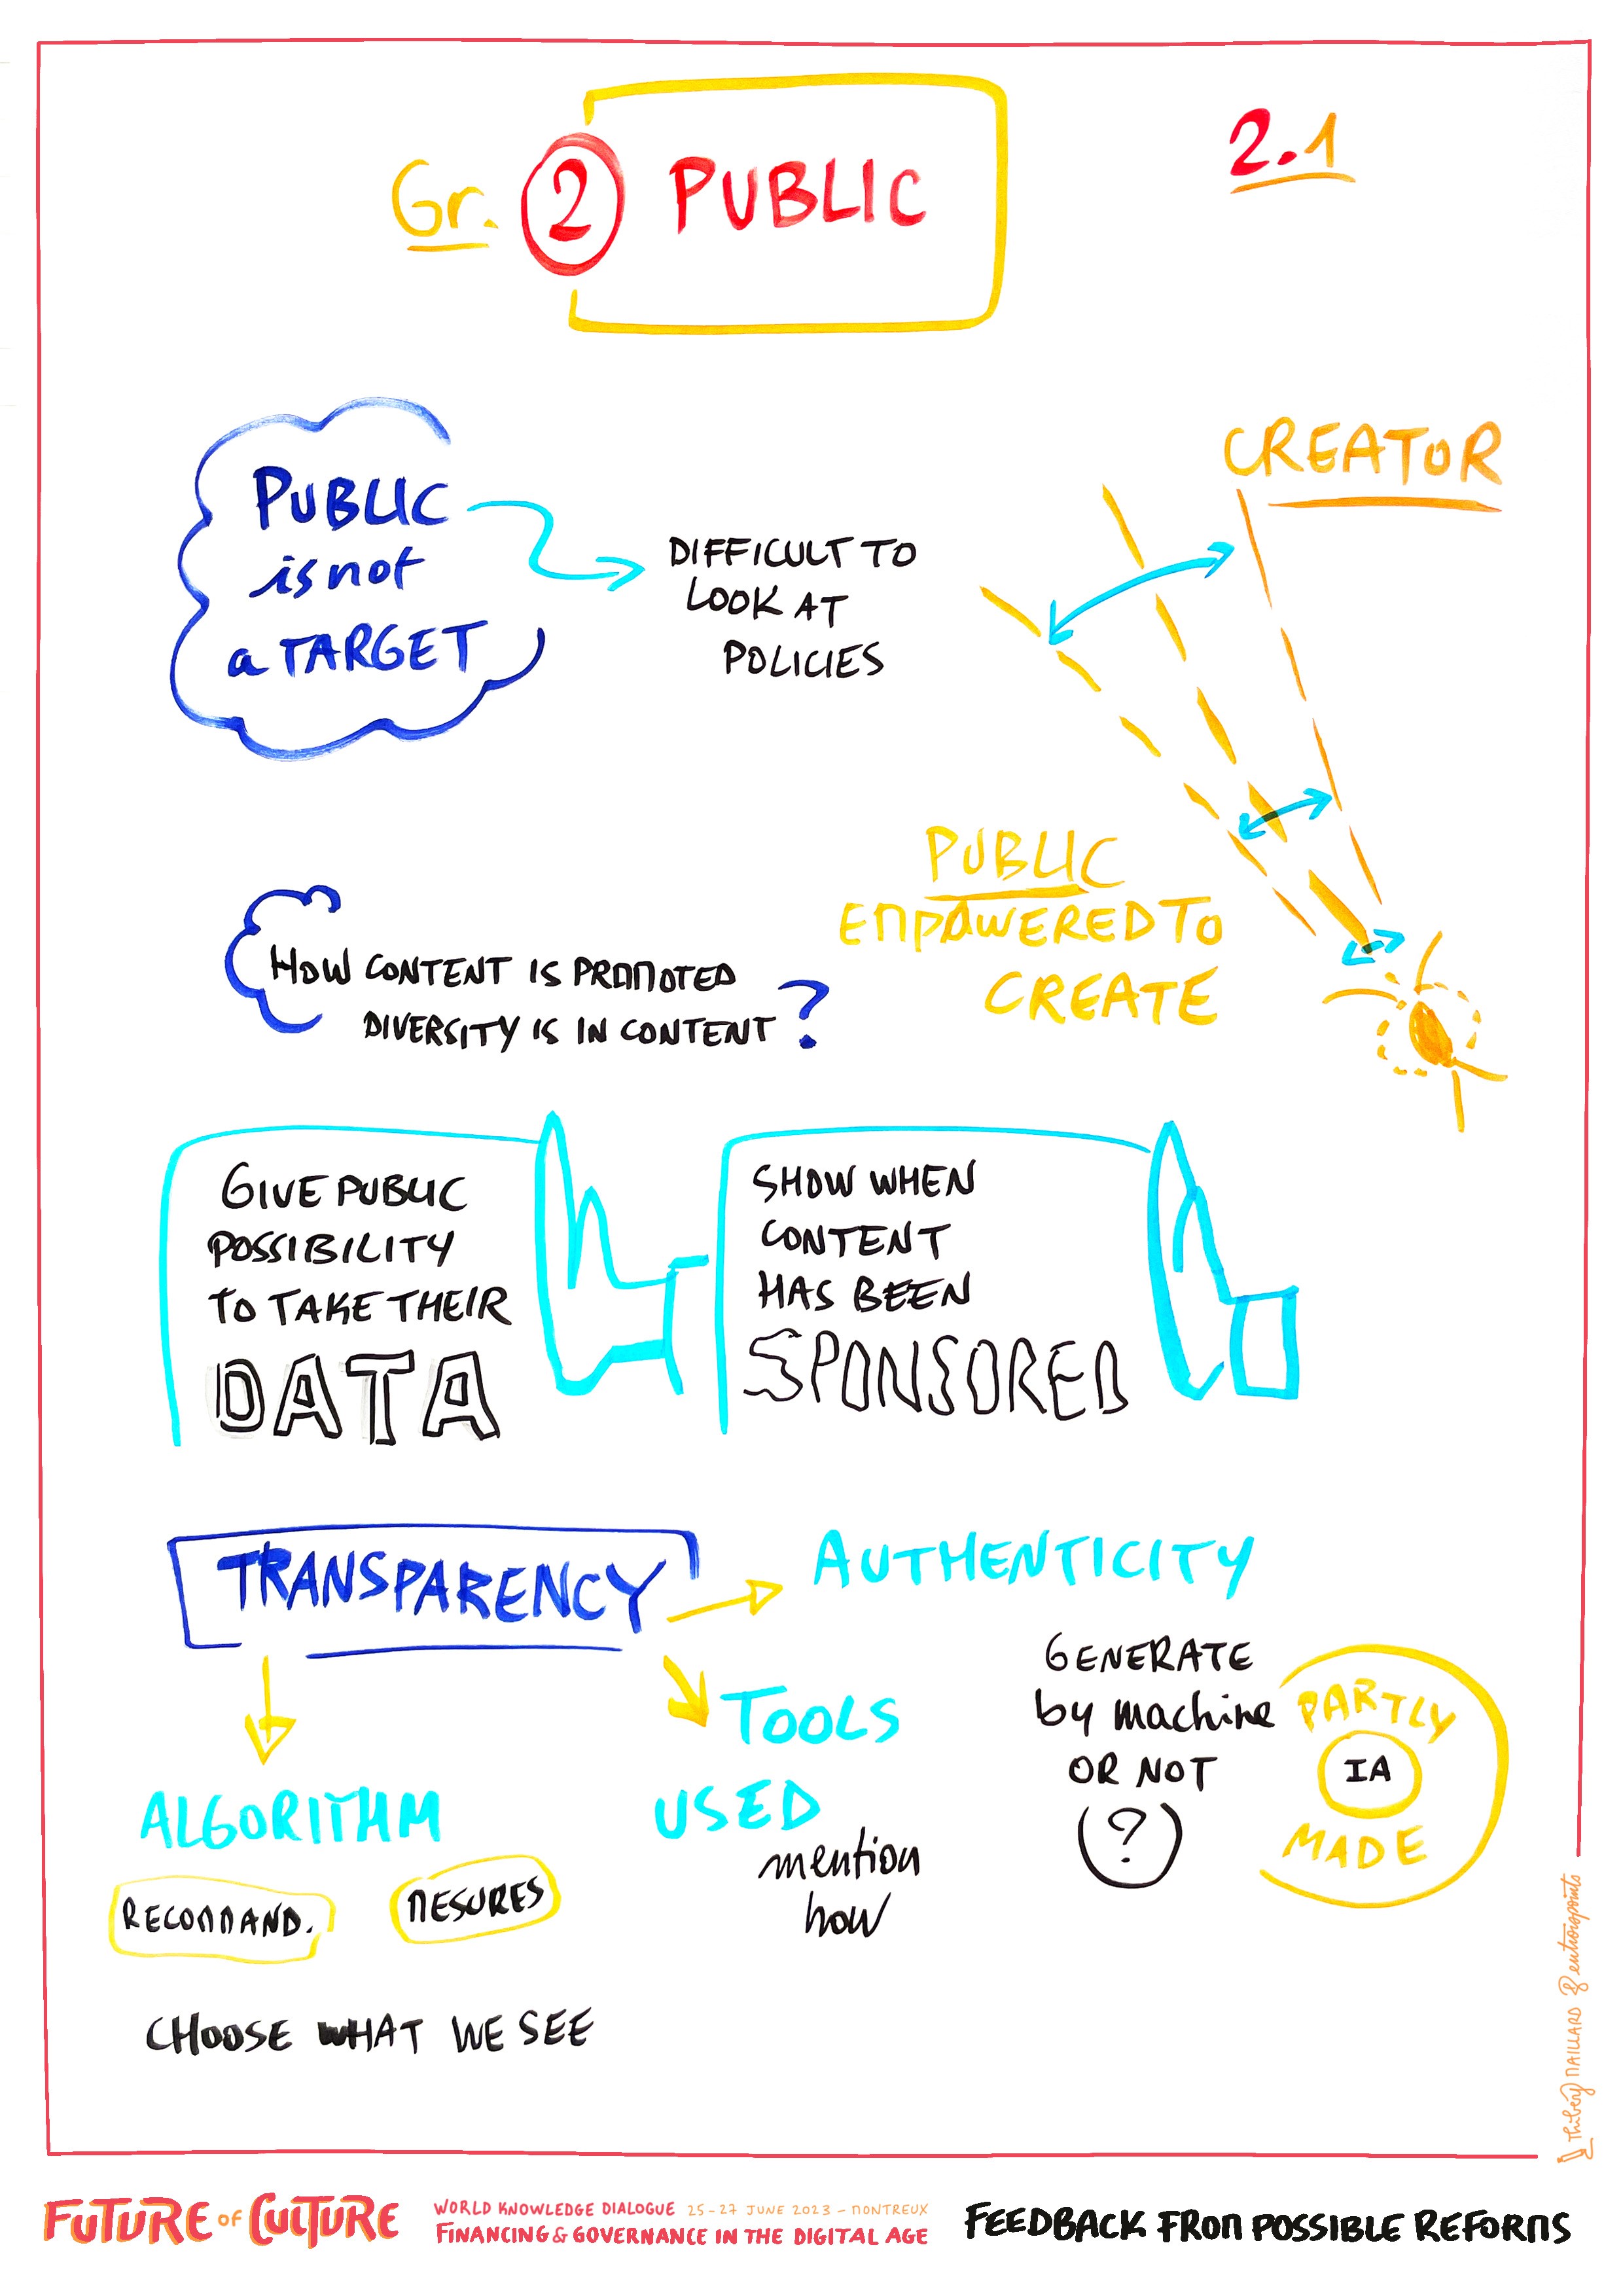 Gr. 2 PUBLIC
2.1
PUBLIC
is not
a TARGET
DIFFICULT TO
LOOK AT
POLICIES
CREATOR
PUBLIC
EMPOWERED TO
CREATE
HOW CONTENT IS PROMOTED
DIVERSITY IS IN CONTENT ?
GIVE PUBLIC
POSSIBILITY
TO TAKE THEIR
DATA
SHOW WHEN
CONTENT
HAS BEEN
SPONSORED
TRANSPARENCY
AUTHENTICITY
GENERATE
by machine
OR NOT
(?)
PARTLY
IA
MADE
TOOLS
USED
mention
how
ALGORITHM
RECOMMAND.
MESURES
CHOOSE WHAT WE SEE
Thibéry MAILLARD & entoropoints
FUTURE OF CULTURE
WORLD KNOWLEDGE DIALOGUE 25-27 JUNE 2023 - MONTREUX
FINANCING & GOVERNANCE IN THE DIGITAL AGE
FEEDBACK FROM POSSIBLE REFORMS